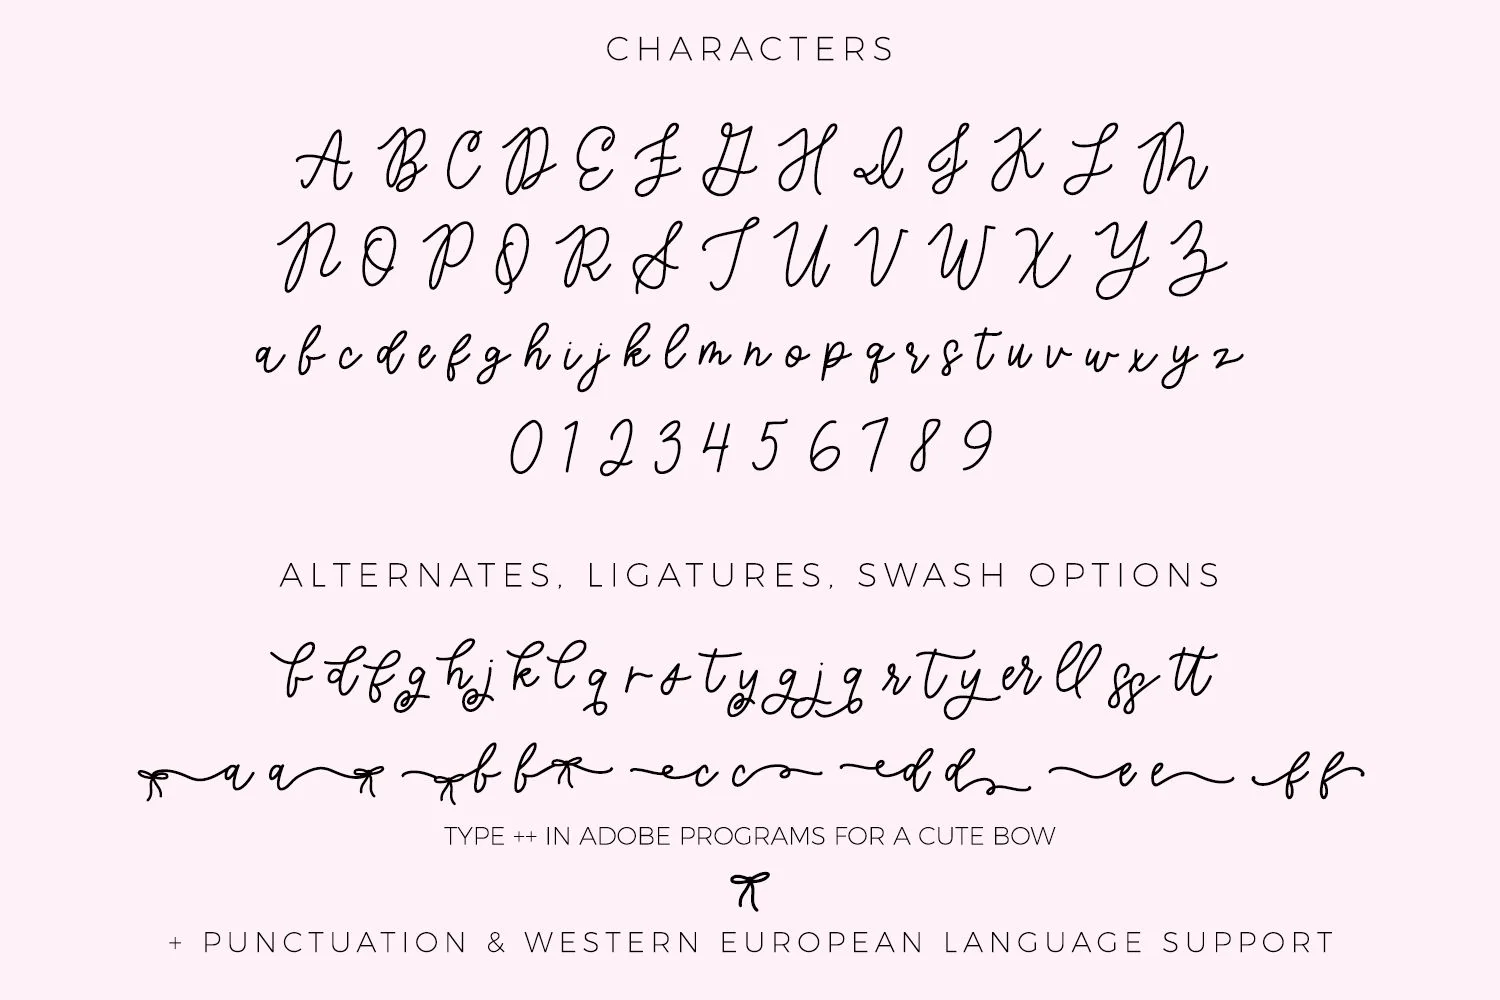 CHARACTERS
A B C D E F G H I J K L M
N O P Q R S T U V W X Y Z
a b c d e f g h i j k l m n o p q r s t u v w x y z
0 1 2 3 4 5 6 7 8 9
ALTERNATES, LIGATURES, SWASH OPTIONS
b d f g h j k l q r s t y g j q r t y er ll ss tt
a a b b c c d d e e f f
TYPE ++ IN ADOBE PROGRAMS FOR A CUTE BOW
+ PUNCTUATION & WESTERN EUROPEAN LANGUAGE SUPPORT